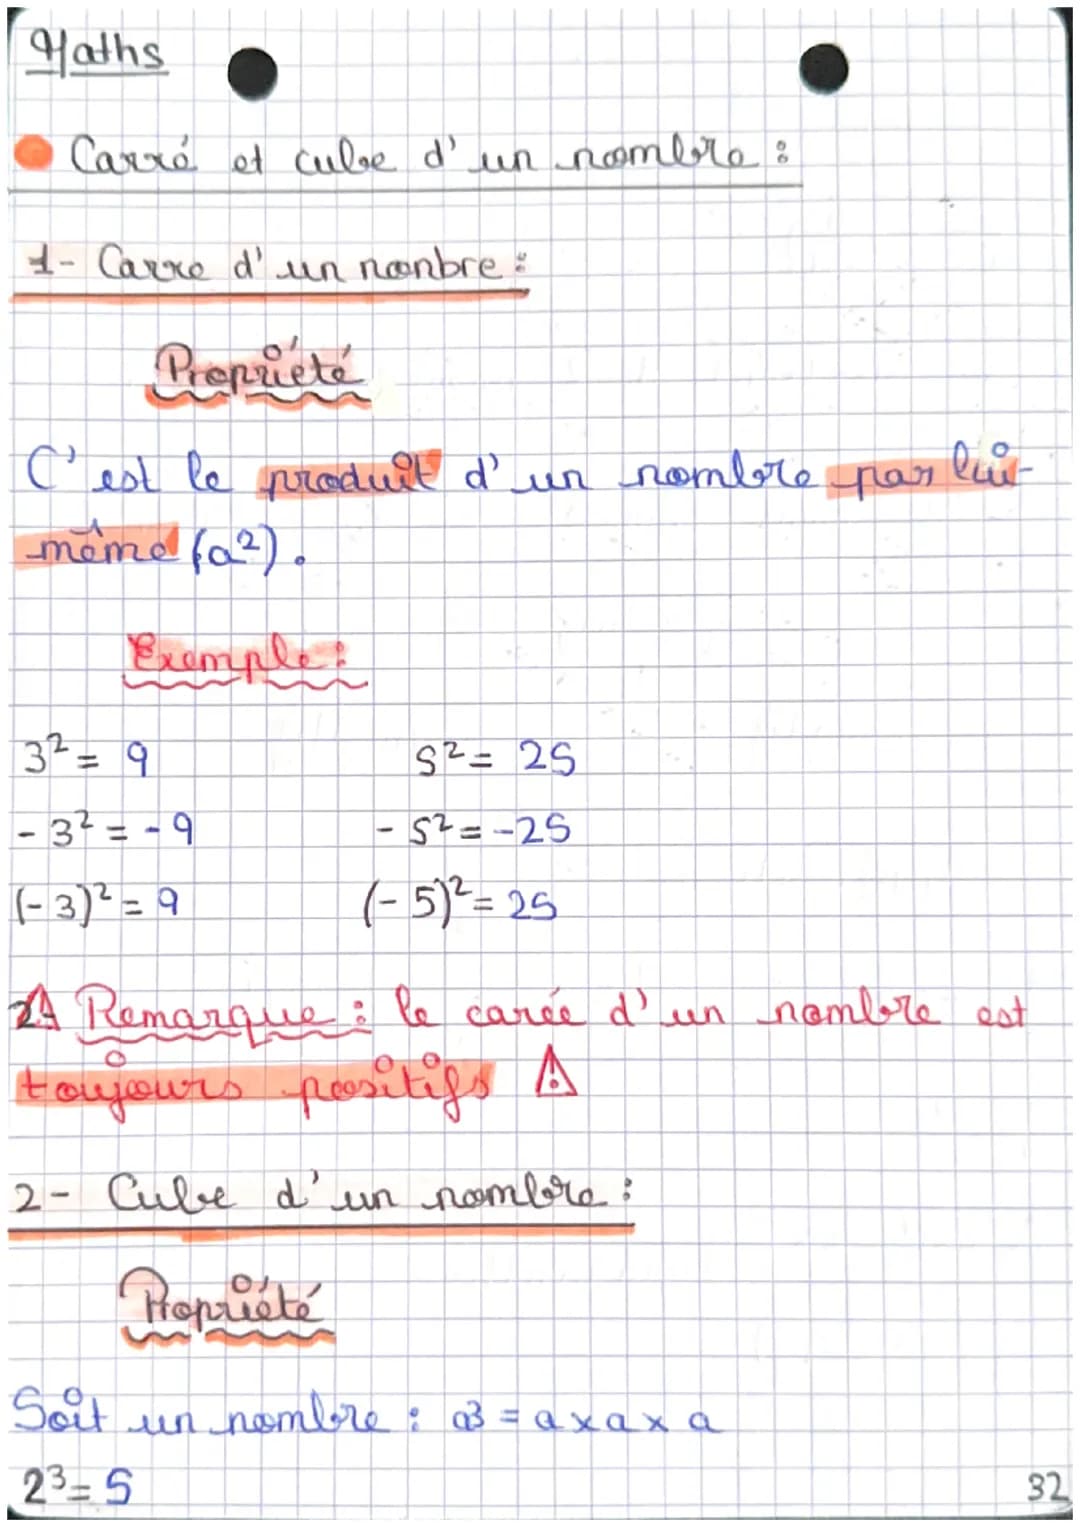 Maths
Carré et cube d'un nombre :
1- Carre d'un nonbre :
Propriété
C'est le produit d'un nombre par lui-
même (a²).
Exemple :
3² = 9 5² = 25
- 3² = - 9 - 5² = -25
(- 3)² = 9 (- 5)² = 25
Remarque : le carée d'un nombre est
toujours positifs ⚠
2- Cube d'un nombre :
Propriété
Soit un nombre : a³ = a x a x a
2³ = 5
32